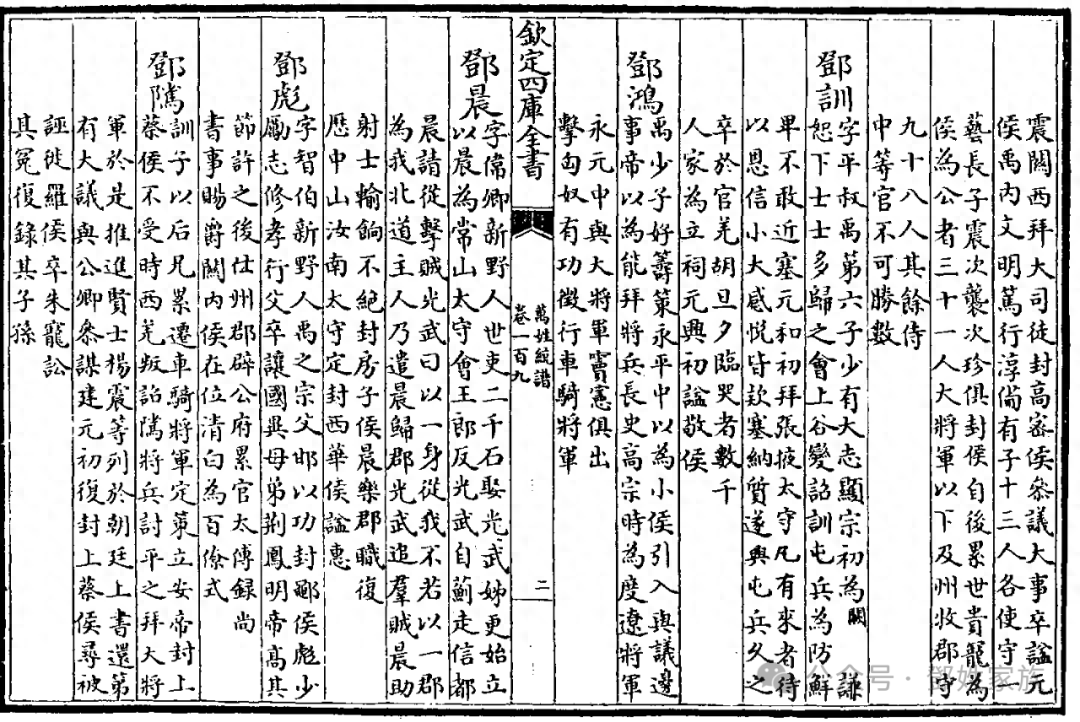 震關西拜大司徒封高密侯叅議大事卒諡元
侯禹内文明篤行淳備有子十三人各使守一
藝長子震次襲次珍俱封侯自後累世貴寵為
侯為公者三十一人大將軍以下及州牧郡守
九十八人其餘侍
中等官不可勝數
鄧訓
字平叔禹第六子少有大志顯宗初為闕謙
恕下士士多歸之會上谷變詔訓屯兵為防鮮
卑不敢近塞元和初拜張掖太守凡有來者待
以恩信小大感悅皆欵塞納質遂興屯兵久之
卒於官羌胡旦夕臨哭者數千
人家為立祠元興初諡敬侯
鄧鴻
禹少子好籌策永平中以為小侯引入與議邊
事帝以為能拜將兵長史高宗時為度遼將軍
永元中與大將軍竇憲俱出
擊匈奴有功徵行車騎將軍
欽定四庫全書
萬姓統譜
卷一百九
二
鄧晨
字偉卿新野人世吏二千石娶光武姊更始立
以晨為常山太守會王郎反光武自薊走信都
晨請從擊賊光武曰以一身從我不若以一郡
為我北道主人乃遣晨歸郡光武追羣賊晨助
射士輸餉不絕封房子侯晨樂郡職復
歴中山汝南太守定封西華侯諡惠
鄧彪
字智伯新野人禹之宗父邯以功封鄳侯彪少
勵志修孝行父卒讓國異母弟荆鳳明帝高其
節許之後仕州郡辟公府累官太傅録尚
書事賜爵關内侯在位清白為百僚式
鄧隲
訓子以后兄累遷車騎將軍定策立安帝封上
蔡侯不受時西羌叛詔隲將兵討平之拜大將
軍於是推進賢士楊震等列於朝廷上書還第
有大議與公卿叅謀建元初復封上蔡侯尋被
誣徙羅侯卒朱寵訟
其冤復錄其子孫
公众号·邓姓家族